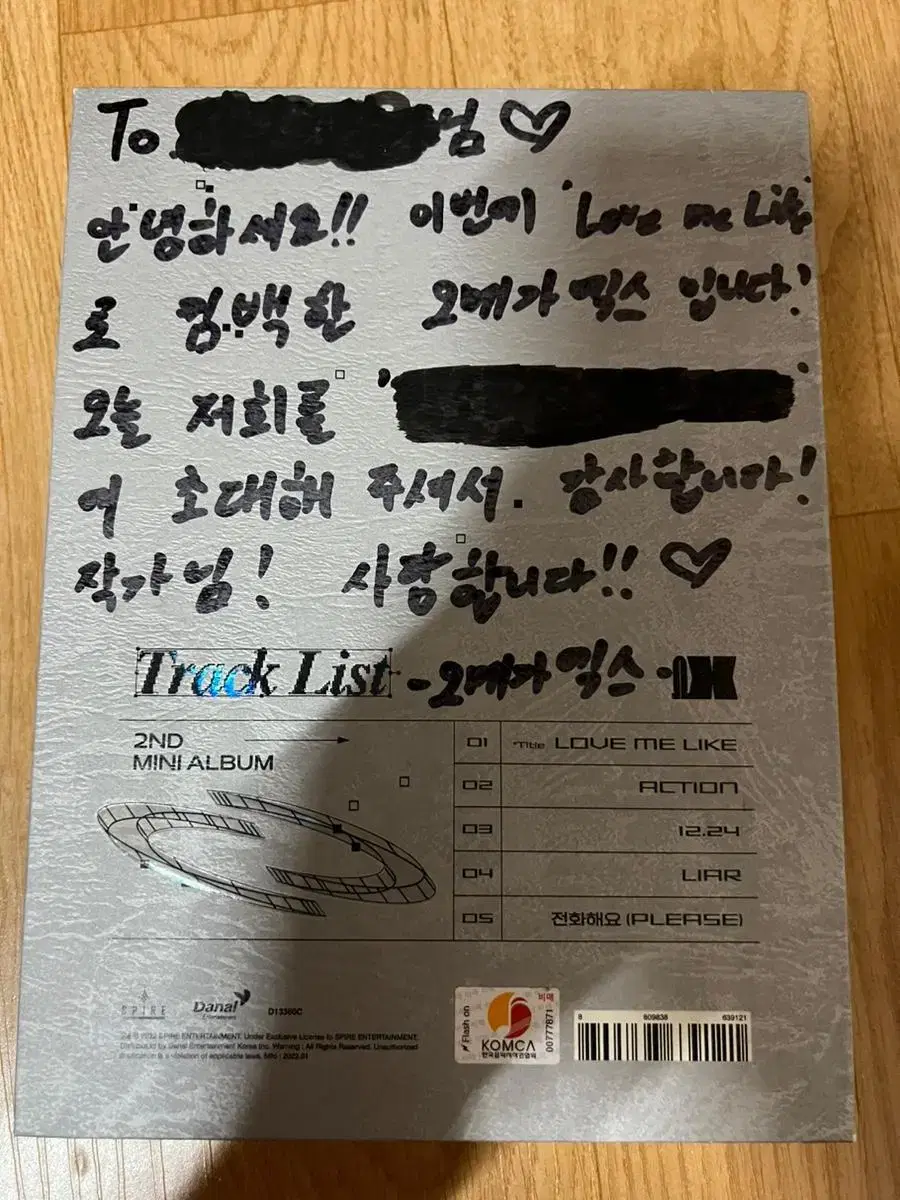 To 님 ♡
안녕하세요!! 이번에 'Love me Like'
로 컴백한 오메가엑스 입니다!
오늘 저희를 '
에 초대해 주셔서. 감사합니다!
작가님! 사랑합니다!! ♡
Track List -오메가엑스-
2ND
MINI ALBUM
01 *Title LOVE ME LIKE
02 ACTION
03 12.24
04 LIAR
05 전화해요 (PLEASE)
SPIRE Danal Entertainment D13360C
SPIRE ENTERTAINMENT. Under Exclusive License to SPIRE ENTERTAINMENT.
Distributed by Danal Entertainment Korea Inc. Warning : All Rights Reserved. Unauthorized
duplication is a violation of applicable laws. Mfd : 2022.01
Flash on
비매
00777871
KOMCA
한국음악저작권협회
8 809838 639121